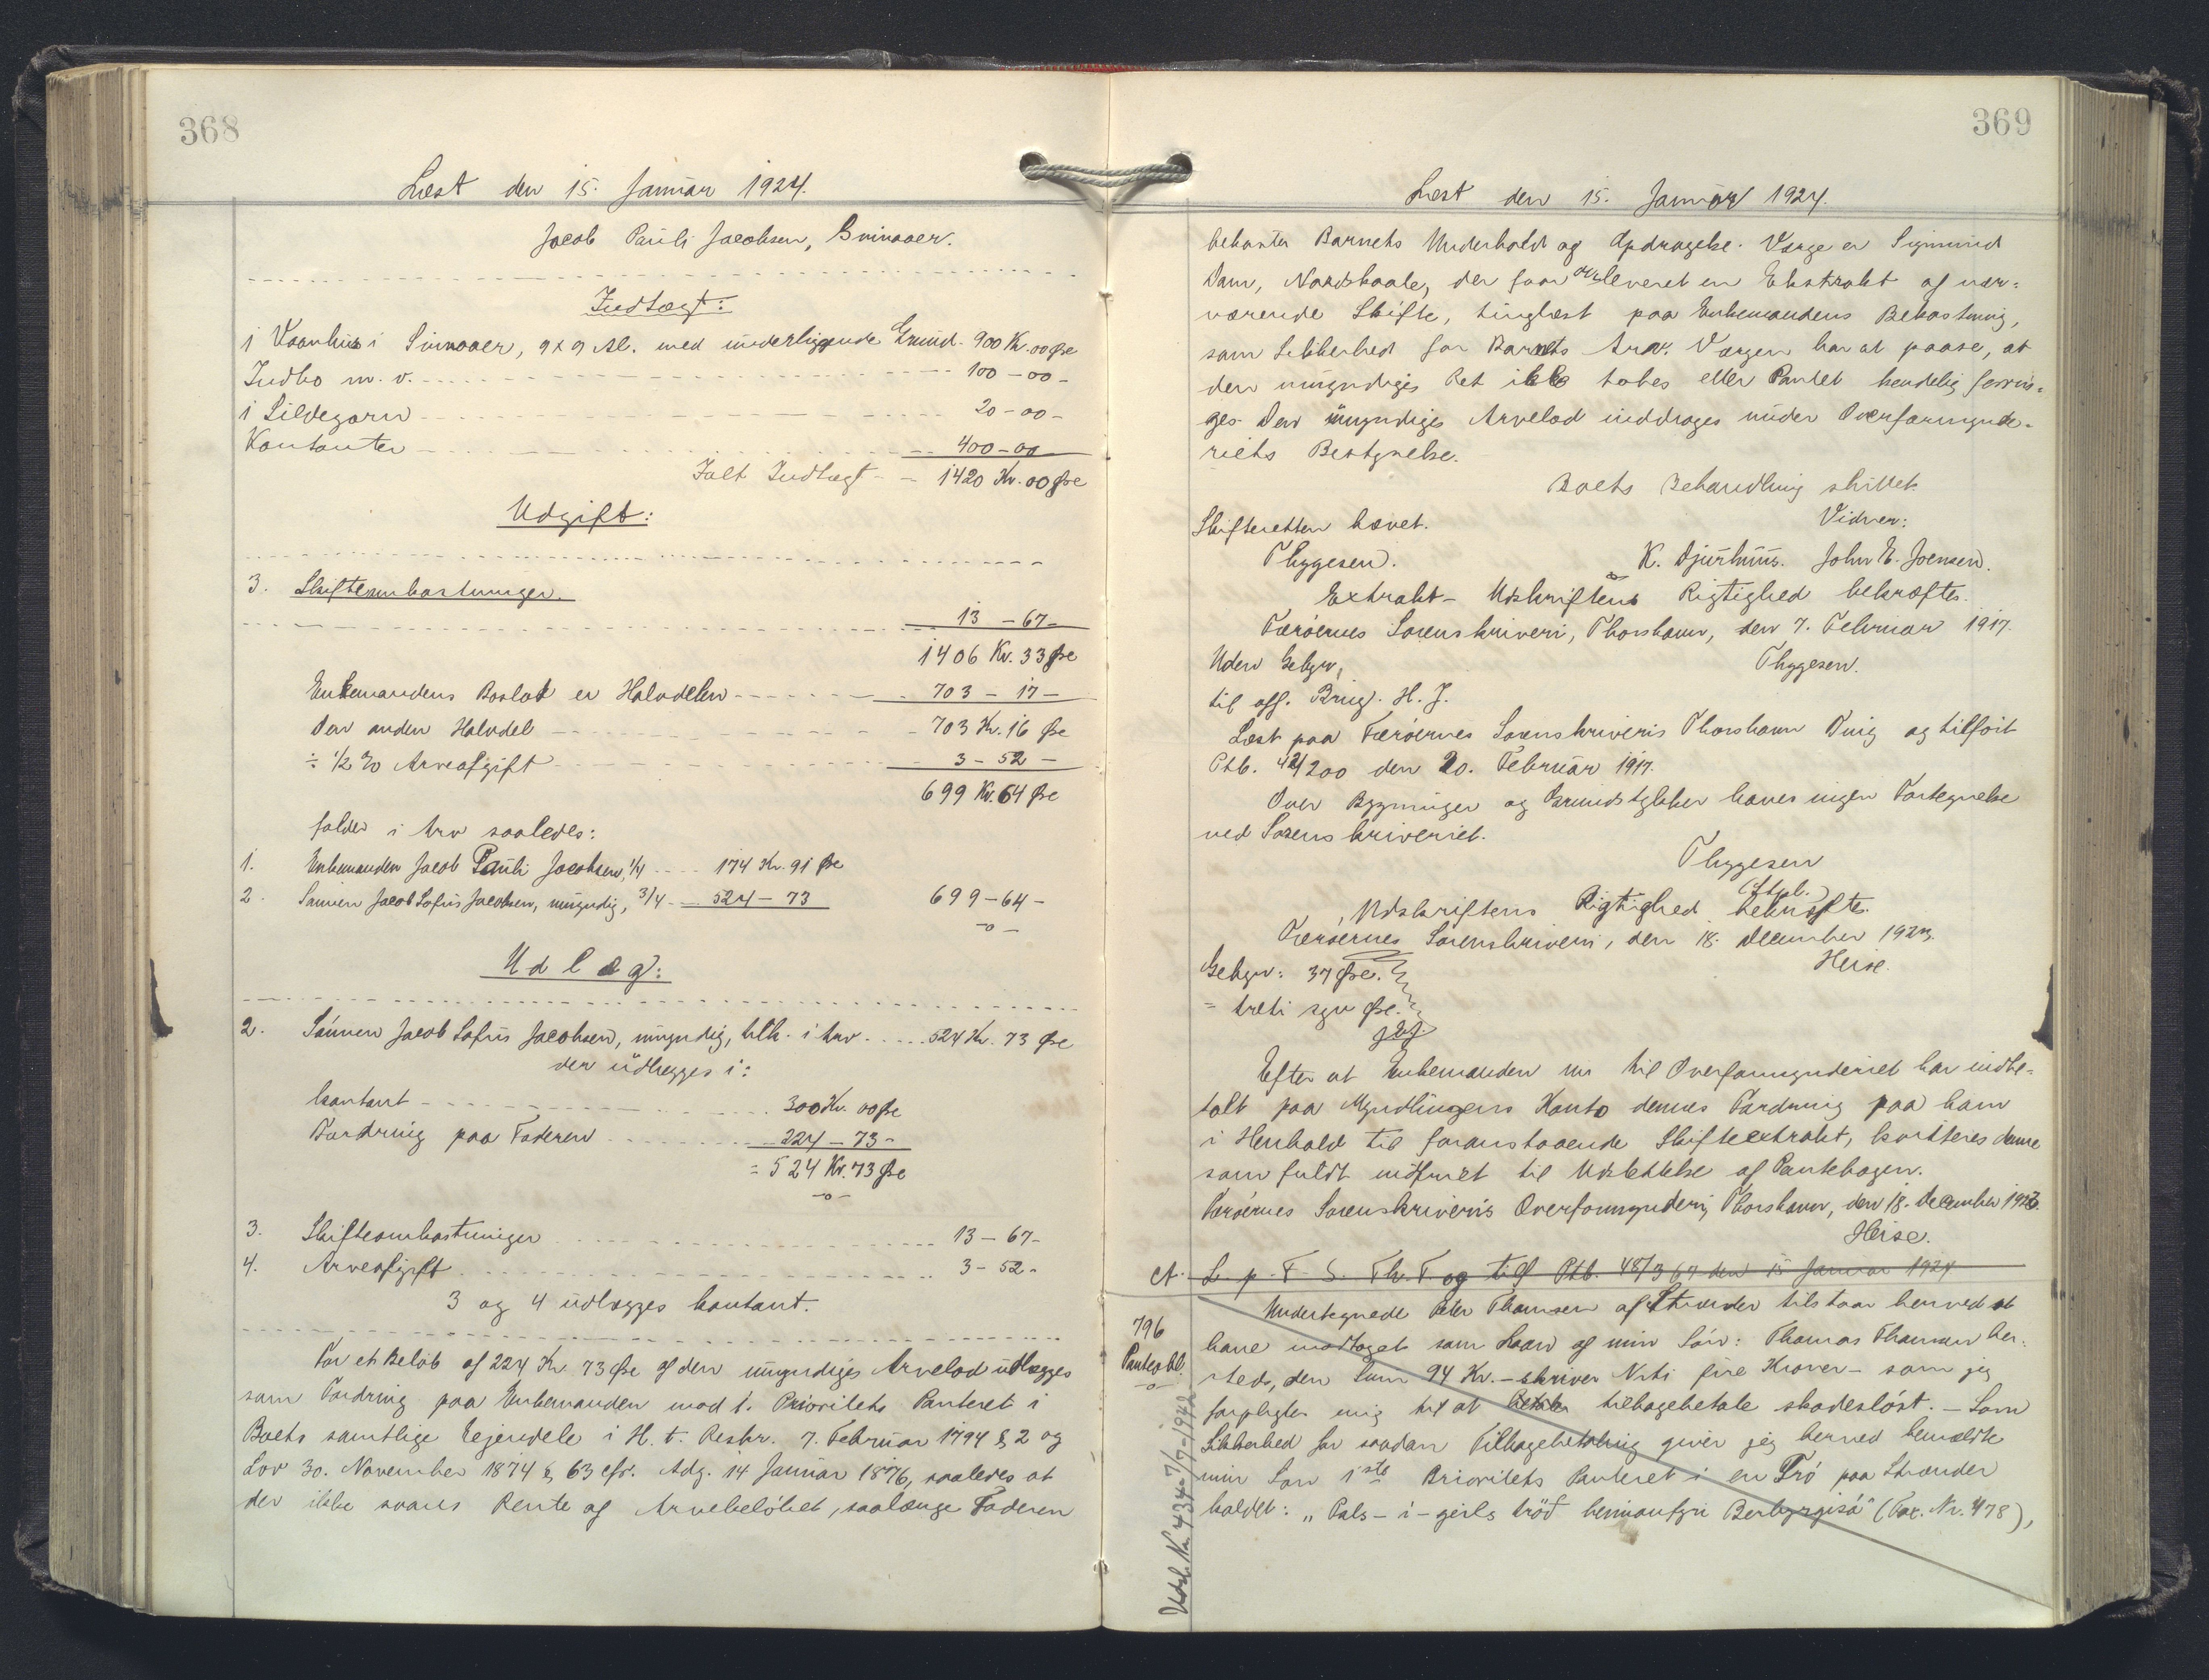 368
Læst den 15. Januar 1924.
Jacob Pauli Jacobsen, Svinaaer.
Indtægt:
1 Vaanhus i Svinaaer, 9x9 Al. med underliggende Grund. 900 Kr. 00 Øre
Indbo m. v. 100-00-
1 Sildegarn 20-00-
Kontanter 400-00
Ialt Indtægt - 1420 Kr. 00 Øre
Udgift:
3. Skifteomkostninger.
13-67-
1406 Kr. 33 Øre
Enkemandens Boslod er Halvdelen 703-17-
Den anden Halvdel 703 Kr. 16 Øre
÷ 1/2 % Arveafgift 3-52-
699 Kr. 64 Øre
falder i Arv saaledes:
1. Enkemanden Jacob Pauli Jacobsen, 1/4 174 Kr. 91 Øre
2. Sønnen Jacob Sofus Jacobsen, umyndig, 3/4 524-73 699-64-
-o-
Udlæg:
2. Sønnen Jacob Sofus Jacobsen, umyndig, tilk. i Arv 524 Kr. 73 Øre
der udlægges i:
kontant 300 Kr. 00 Øre
Fordring paa Faderen 224-73-
= 524 Kr. 73 Øre
-o-
3. Skifteomkostninger 13-67-
4. Arveafgift 3-52-
3 og 4 udlægges kontant.
For et Beløb af 224 Kr. 73 Øre af den umyndiges Arvelod udlægges
som Fordring paa Enkemanden mod 1. Prioritets Panteret i
Boets samtlige Ejendele i H. t. Reskr. 7. Februar 1794 § 2 og
Lov 30. November 1874 § 63 cfr. Adg. 14 Januar 1876, saaledes at
der ikke svares Rente af Arvebeløbet, saalænge Faderen
369
Læst den 15. Januar 1924.
bekoster Barnets Underhold og Opdragelse. Værge er Sigmund
Dam, Nordskaale, der faar overleveret en Ekstrakt af nær=
værende Skifte, tinglæst paa Enkemandens Bekostning,
som Sikkerhed for Barnets Arv. Værgen har at paase, at
den umyndiges Ret ikke tabes eller Pantet kendelig forrin=
ges. Den umyndiges Arvelod inddrages under Overformynde=
riets Bestyrelse.
Boets Behandling sluttet.
Skifteretten hævet. Vidner:
Thygesen. K. Djurhuus. John E. Joensen.
Extrakt-Udskriftens Rigtighed bekræftes.
Færøernes Sorenskriveri, Thorshavn, den 7. Februar 1917.
Uden Gebyr, Thygesen.
til off. Brug. H. J.
Læst paa Færøernes Sorenskriveris Thorshavn Ting og tilført
Ptb. 42/200 den 20. Februar 1917.
Over Bygninger og Grundstykker haves ingen Fortegnelse
ved Sorenskriveriet.
Thygesen
(Stpl.)
Udskriftens Rigtighed bekræftes.
Færøernes Sorenskriveri, den 18. December 1923.
Heise.
Gebyr: 37 Øre.
= treti syv Øre.
Efter at Enkemanden nu til Overformynderiet har indbe=
talt paa Myndlingens Konto dennes Fordring paa ham
i Henhold til foranstaaende Skifteextrakt, kvitteres denne
som fuldt indfriet til Udslettelse af Pantebogen.
Færøernes Sorenskriveris Overformynderi, Thorshavn, den 18. December 1923.
Heise.
L. p. F. S. Th. T. og tilf Ptb. 48/367 den 15 Januar 1924
796
Panteobl.
-o-
Undertegnede Peter Thomsen af Strænder tilstaar herved at
have modtaget som Laan af min Søn: Thomas Thomsen her-
sted, den Sum 94 Kr. - skriver Niti fire Kroner - som jeg
forpligter mig til at betale tilbagebetale skadesløst. - Som
Sikkerhed for saadan Tilbagebetaling giver jeg herved bemeldte
min Søn 1ste Prioritets Panteret i en Trö paa Strænder
kaldet: "Pals-i-geils tröð heimanfyri Berbyrgisá" (Tax. Nr. 478),
Udsl. Nr. 434-7/7-1942